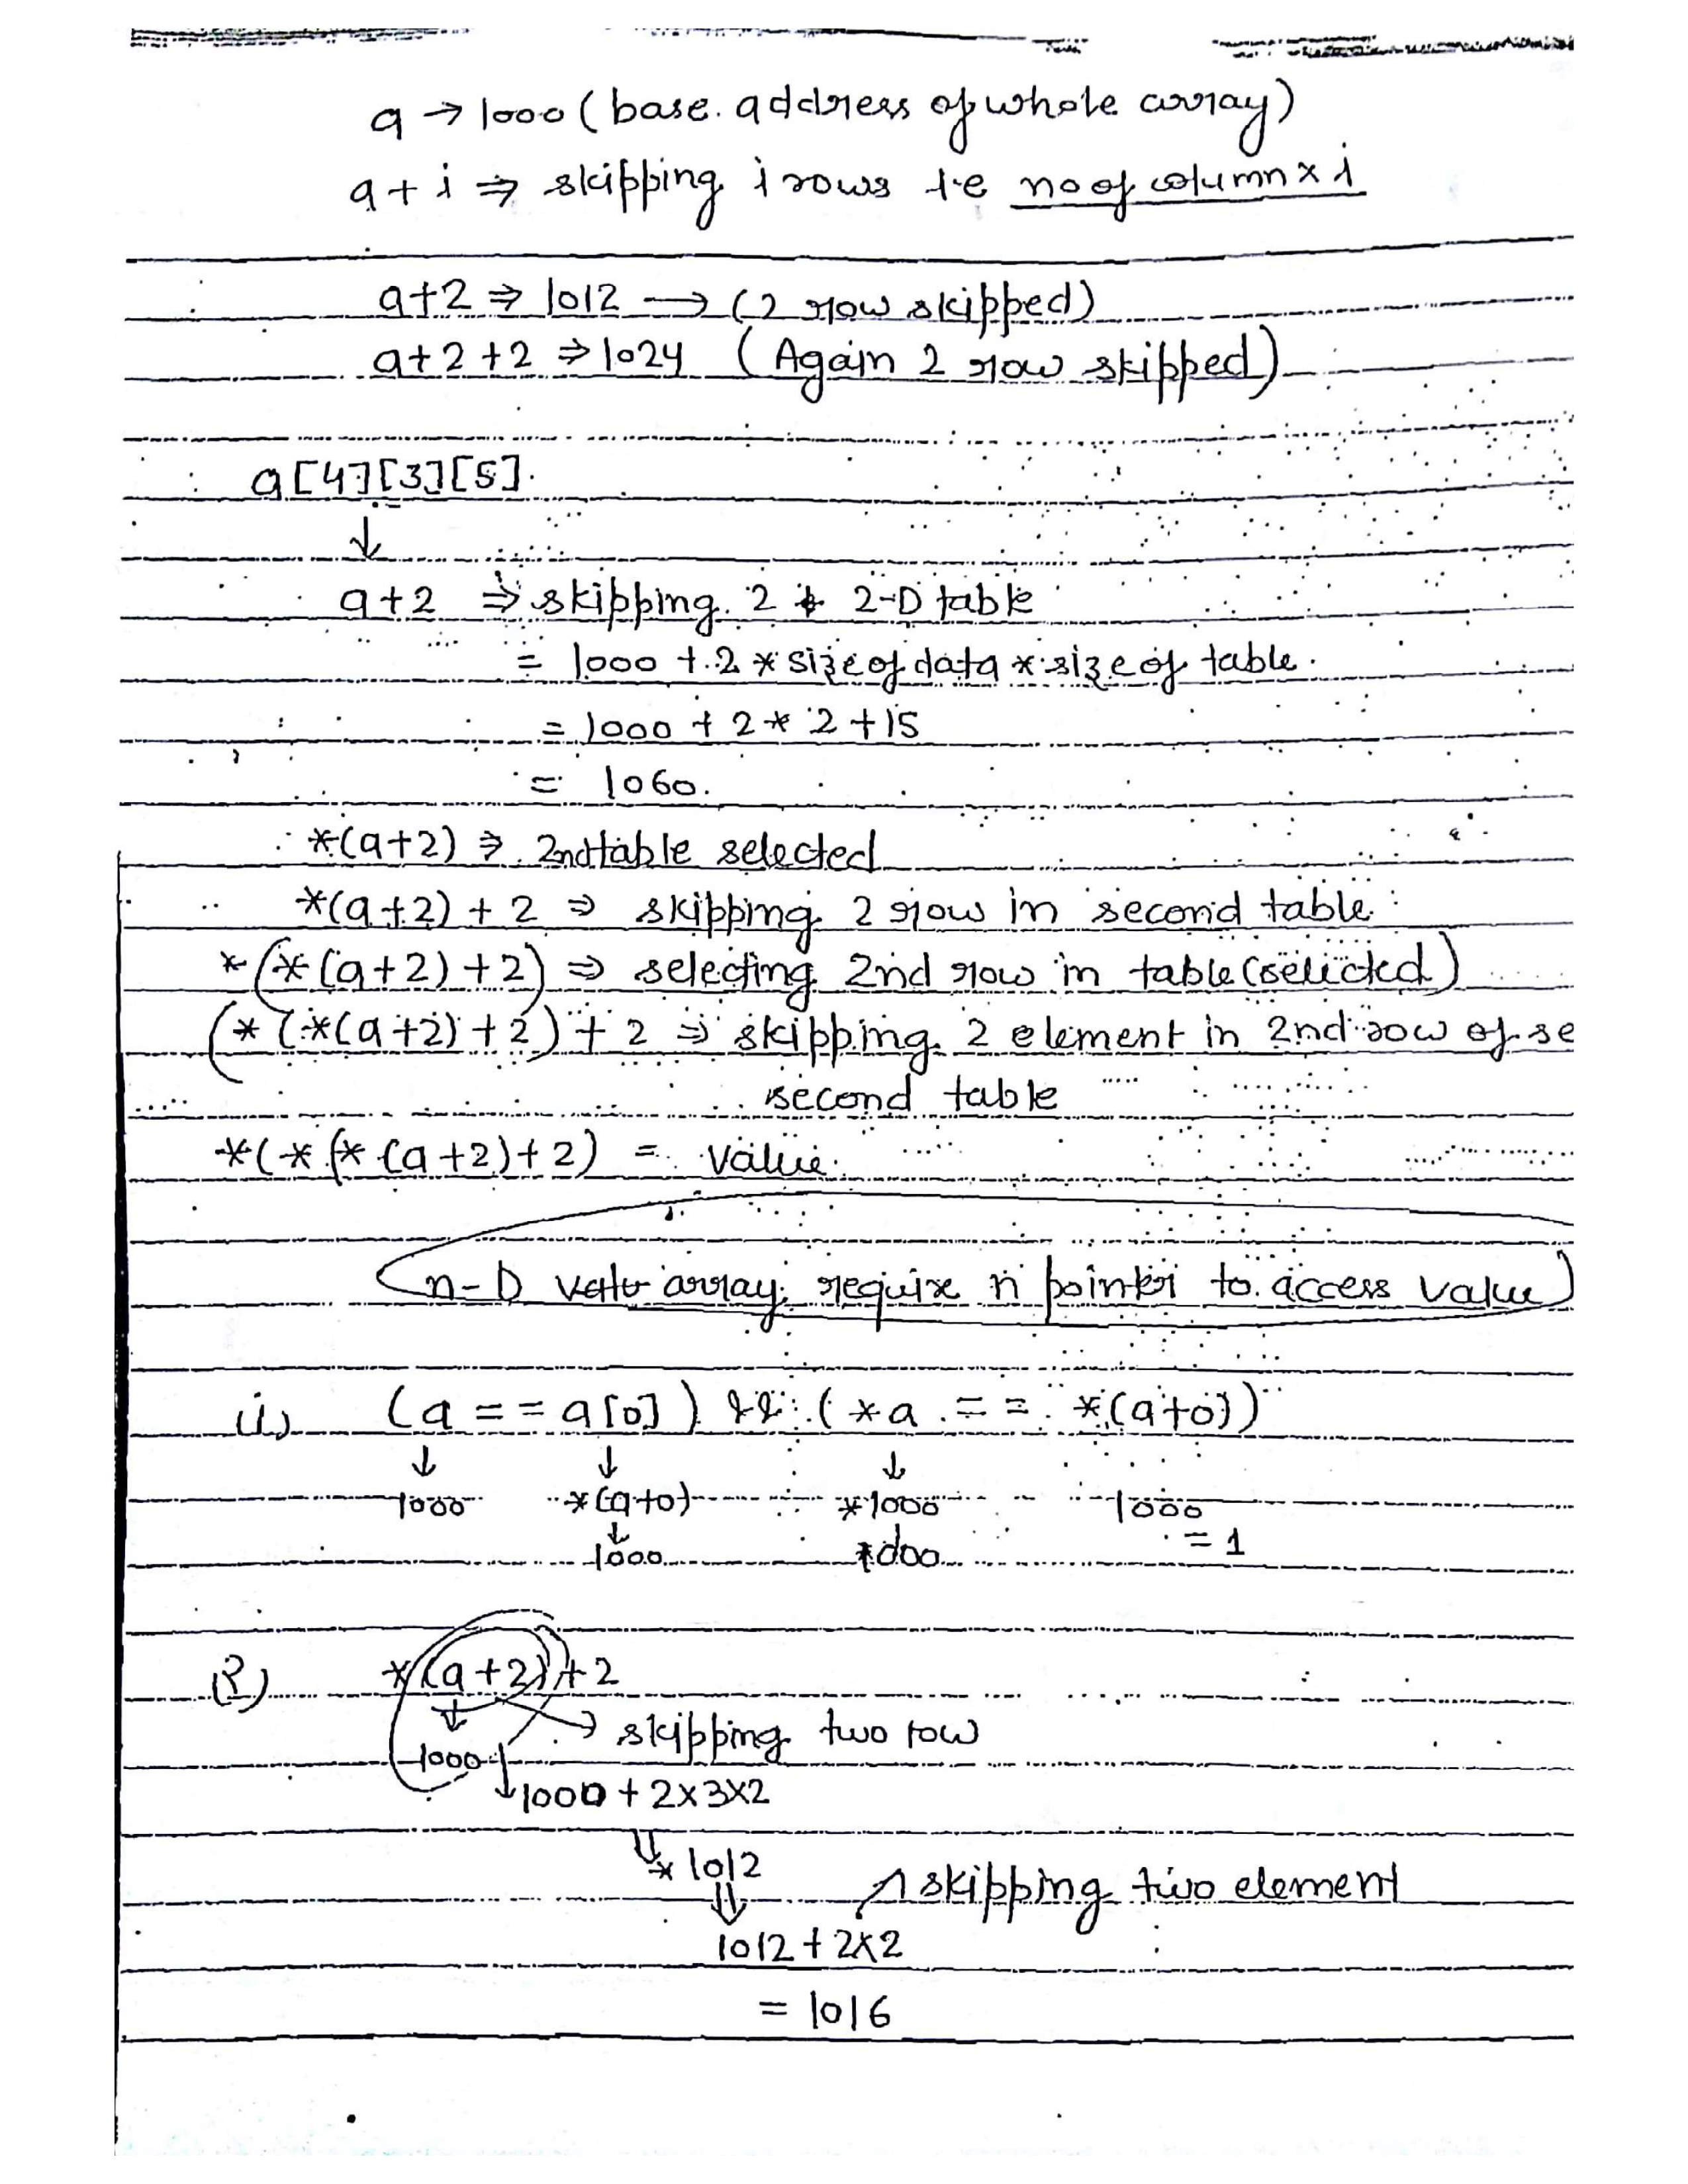 a → 1000 (base. address of whole array)
a + i ⇒ skipping i rows i.e no of column × i
a+2 ⇒ 1012 → (2 row skipped)
a+2+2 ⇒ 1024 (Again 2 row skipped)
a[4][3][5].
↓
a+2 ⇒ skipping 2 2-D table
= 1000 + 2 * size of data * size of table.
= 1000 + 2 * 2 + 15
= 1060.
*(a+2) ⇒ 2nd table selected
*(a+2) + 2 ⇒ skipping 2 row in second table
*(*(a+2)+2) ⇒ selecting 2nd row in table (selected)
(*(*(a+2)+2)+2 ⇒ skipping 2 element in 2nd row of se
second table
*(*(*(a+2)+2) = value.
n-D array require n pointer to access value
(a == a[0]) && (*a == *(a+0))
↓ ↓ ↓
1000 *(a+0) *1000 1000
↓
1000 1000 = 1
2) *((a+2))+2
↓ → skipping two row
1000
↓ 1000 + 2×3×2
⇓
* 1012
⇓ skipping two element
1012 + 2×2
= 1016